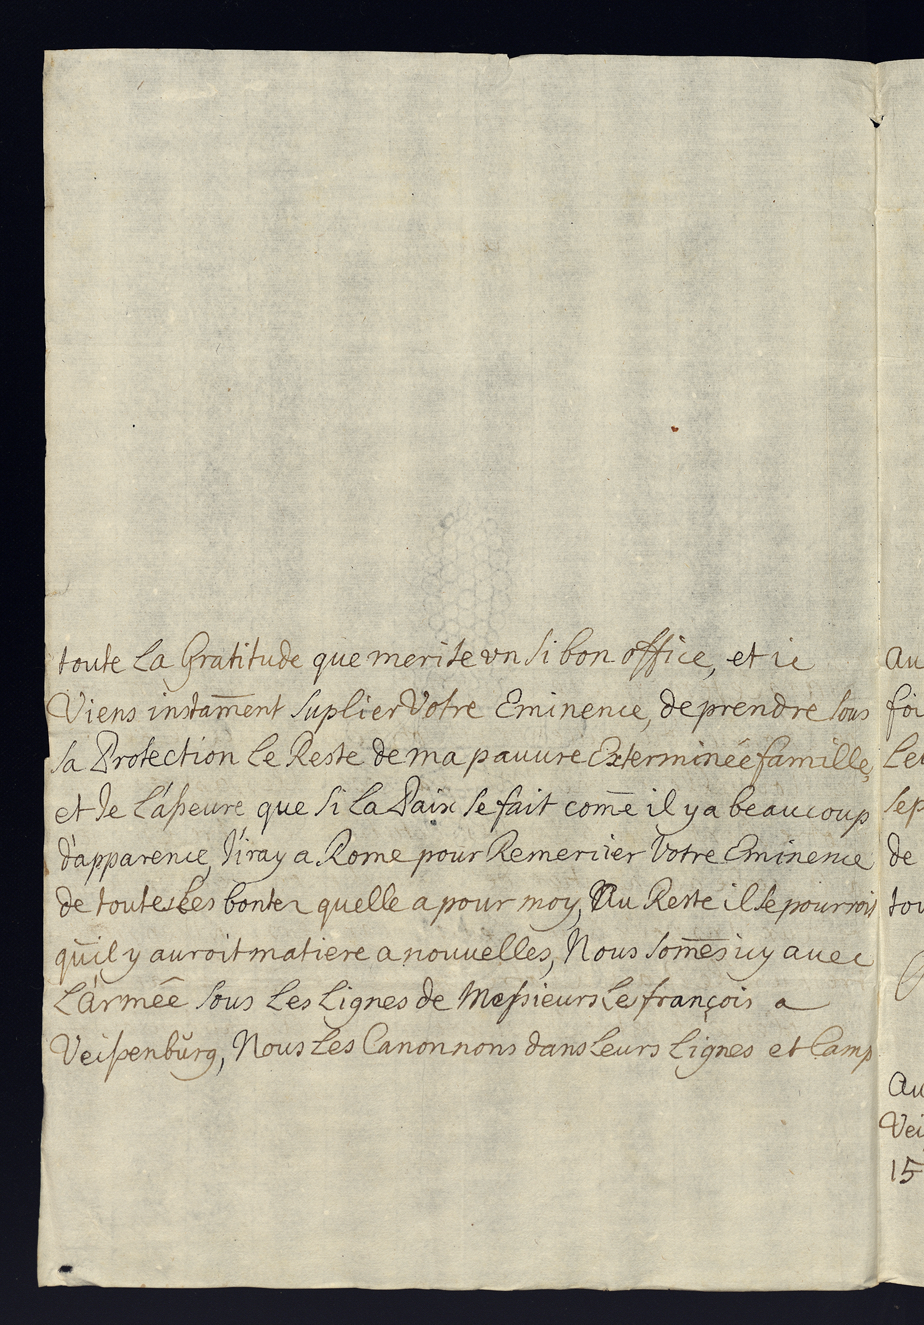 toute La Gratitude que merite vn si bon office, et ie
Viens instam̄ent suplier Votre Eminence, de prendre sous
sa Protection Le Reste de ma pauure Exterminée famille,
et Je L'aßeure que si La Paix se fait com̄e il y a beaucoup
d'apparence, J'iray a Rome pour Remercier Votre Eminence
de toutes Les bontez quelle a pour moy, Au Reste il se pourroit
qu'il y auroit matiere a nouuelles, Nous som̄es icy auec
L'armée sous Les Lignes de Meßieurs Le françois a
Veißenbŭrg, Nous Les Canonnons dans Leurs Lignes et Camp
Au
15